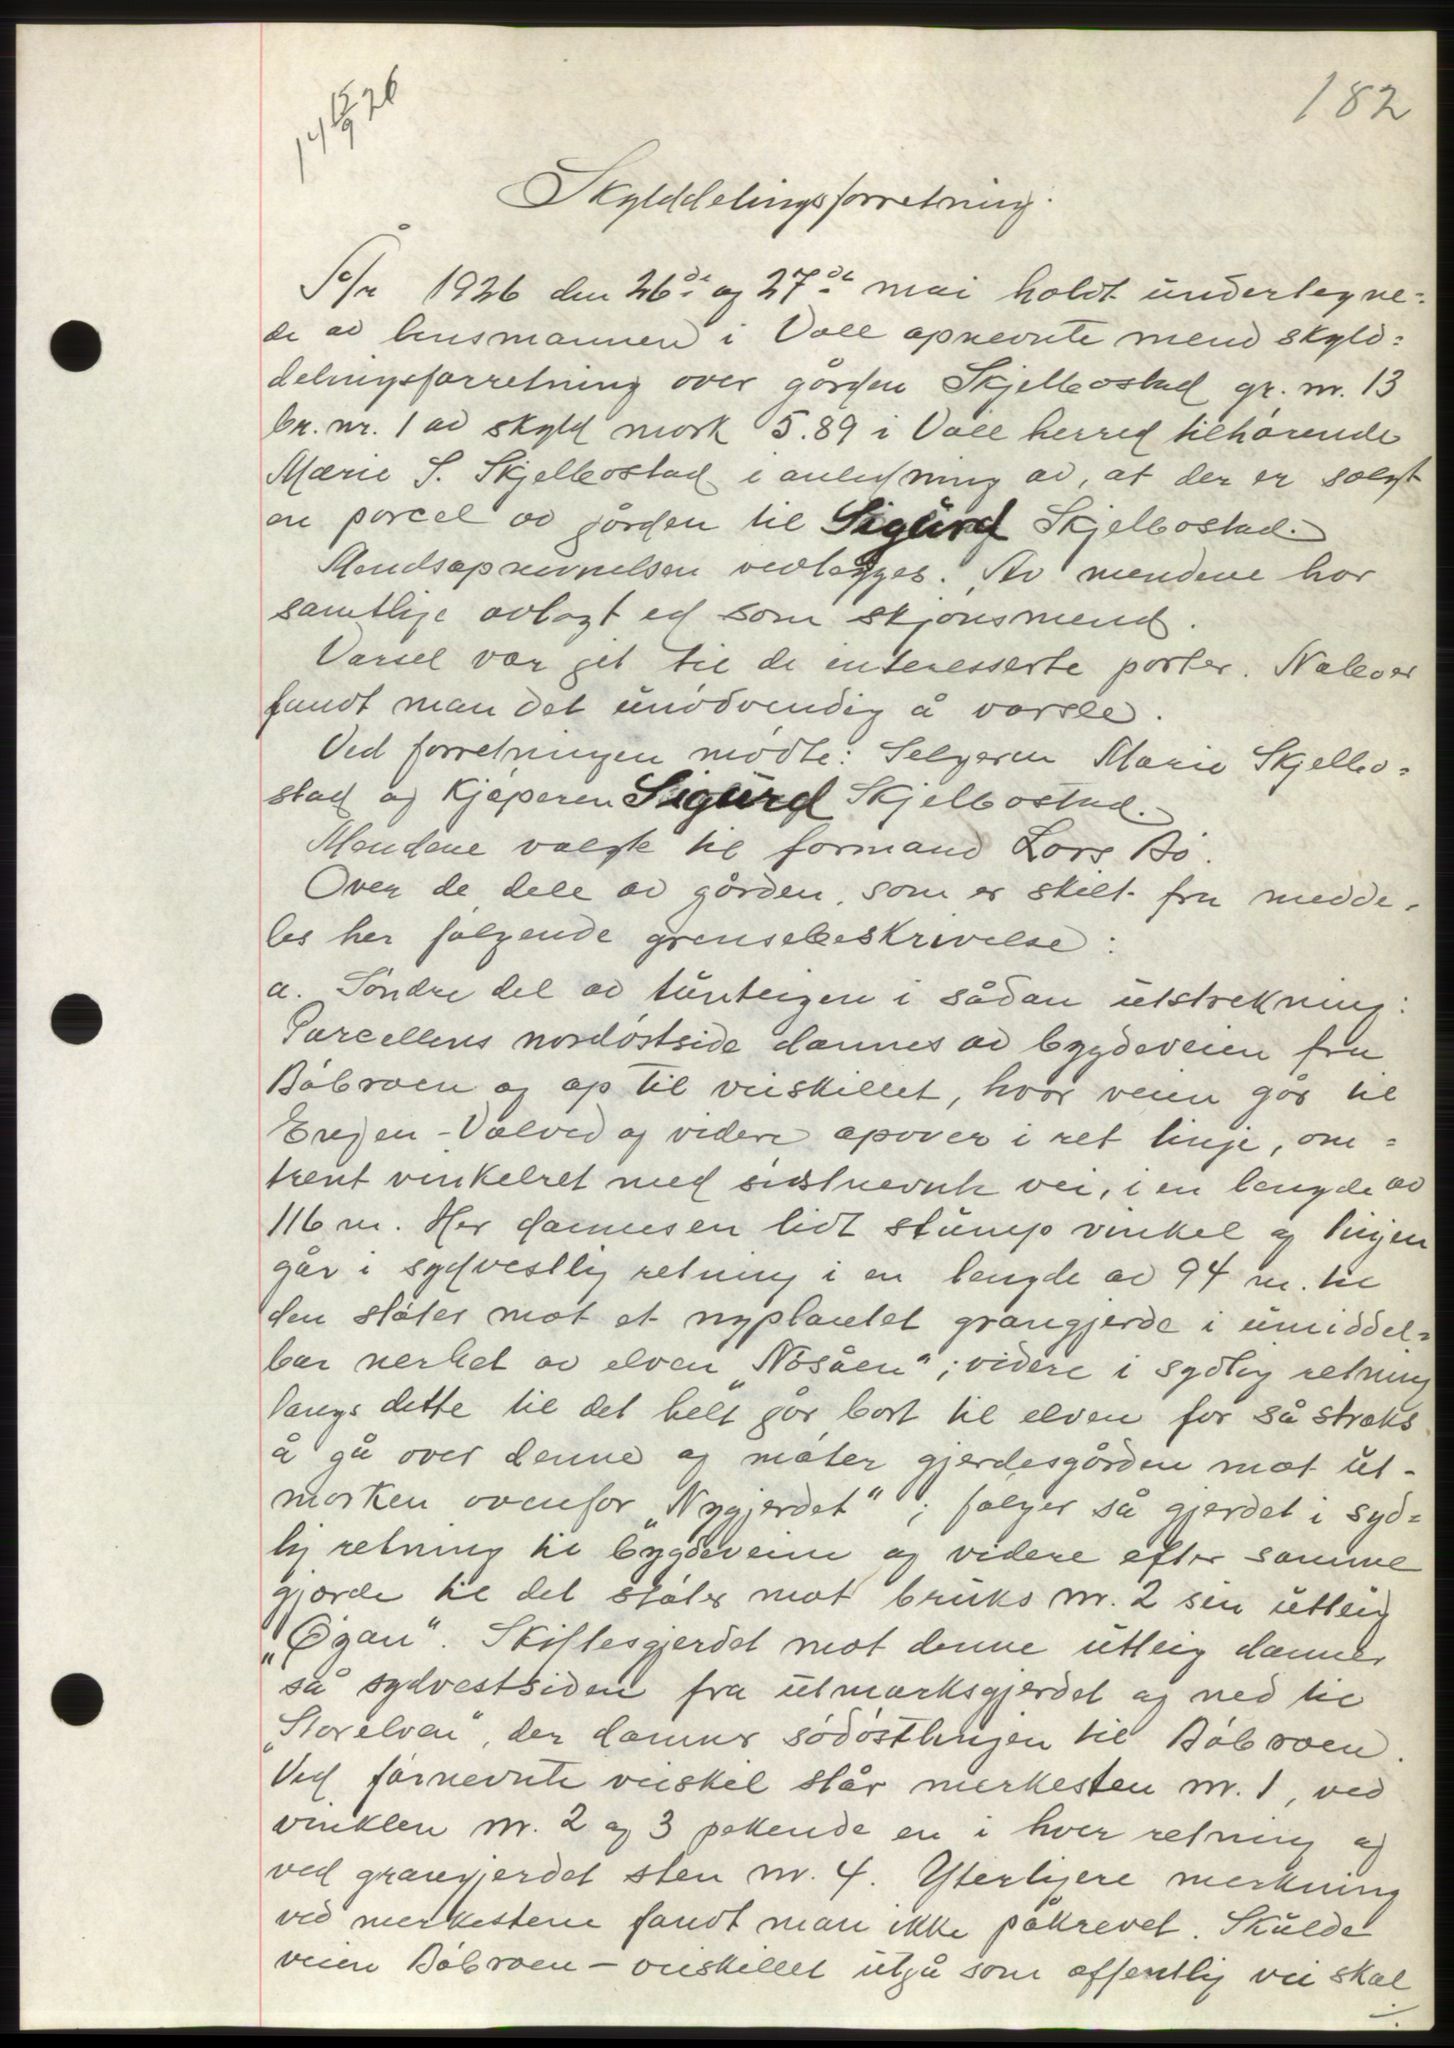 14 15/9 26
182
Skylddelingsforretning.
År 1926 den 26de og 27de mai holdt undertegne=
de av lensmannen i Voll opnevnte menn skyld=
delingsforretning over gården Skjelbostad gr. nr. 13
br. nr. 1 av skyld mark 5.89 i Voll herred tilhørende
Marie S. Skjelbostad i anledning av, at der er solgt
en parcel av gården til Sigurd Skjelbostad.
Mendsopnevnelsen vedlegges. Av mendene har
samtlige avlagt ed som skjønsmend.
Varsel var git til de interesserte parter. Naboer
fandt man det unødvendig å varsle.
Ved forretningen møtte: Selgeren Marie Skjelbo=
stad og kjøperen Sigurd Skjelbostad.
Mendene valgte til formand Lars Bø.
Over de dele av gården, som er skilt fra medde-
les her følgende grensebeskrivelse:
a. Søndre del av tunteigen i sådan utstrekning:
Parcellens nordøstside dannes av bygdeveien fra
Bøbroen og op til veiskillet, hvor veien går til
Engen-Valved og videre opover i ret linje, om=
trent vinkelret med sistnevnte vei, i en lengde av
116 m. Her dannes en lidt stump vinkel og linjen
går i sydvestlig retning i en lengde av 94 m. til
den støter mot et nyplantet grangjerde i umiddel=
bar nerhet av elven "Nosåen"; videre i sydlig retning
langs dette til det helt går bort til elven for så straks
å gå over denne og møter gjerdesgården mot ut-
marken ovenfor "Nygjerdet"; følger så gjerdet i syd=
lig retning til bygdeveien og videre efter samme
gjerde til det støter mot bruks nr. 2 sin utteig
"Øgan". Skiftesgjerdet mot denne utteig danner
så sydvestsiden fra utmarksgjerdet og ned til
"Storelven", der danner sødøstlinjen til Bøbroen.
Ved førnevnte veiskil står merkesten nr. 1, ved
vinklen nr. 2 og 3 pekende en i hver retning og
ved grangjerdet sten nr. 4. Yterligere merkning
ved merkestene fandt man ikke påkrevet. Skulde
veien Bøbroen - veiskillet utgå som offentlig vei skal
./.